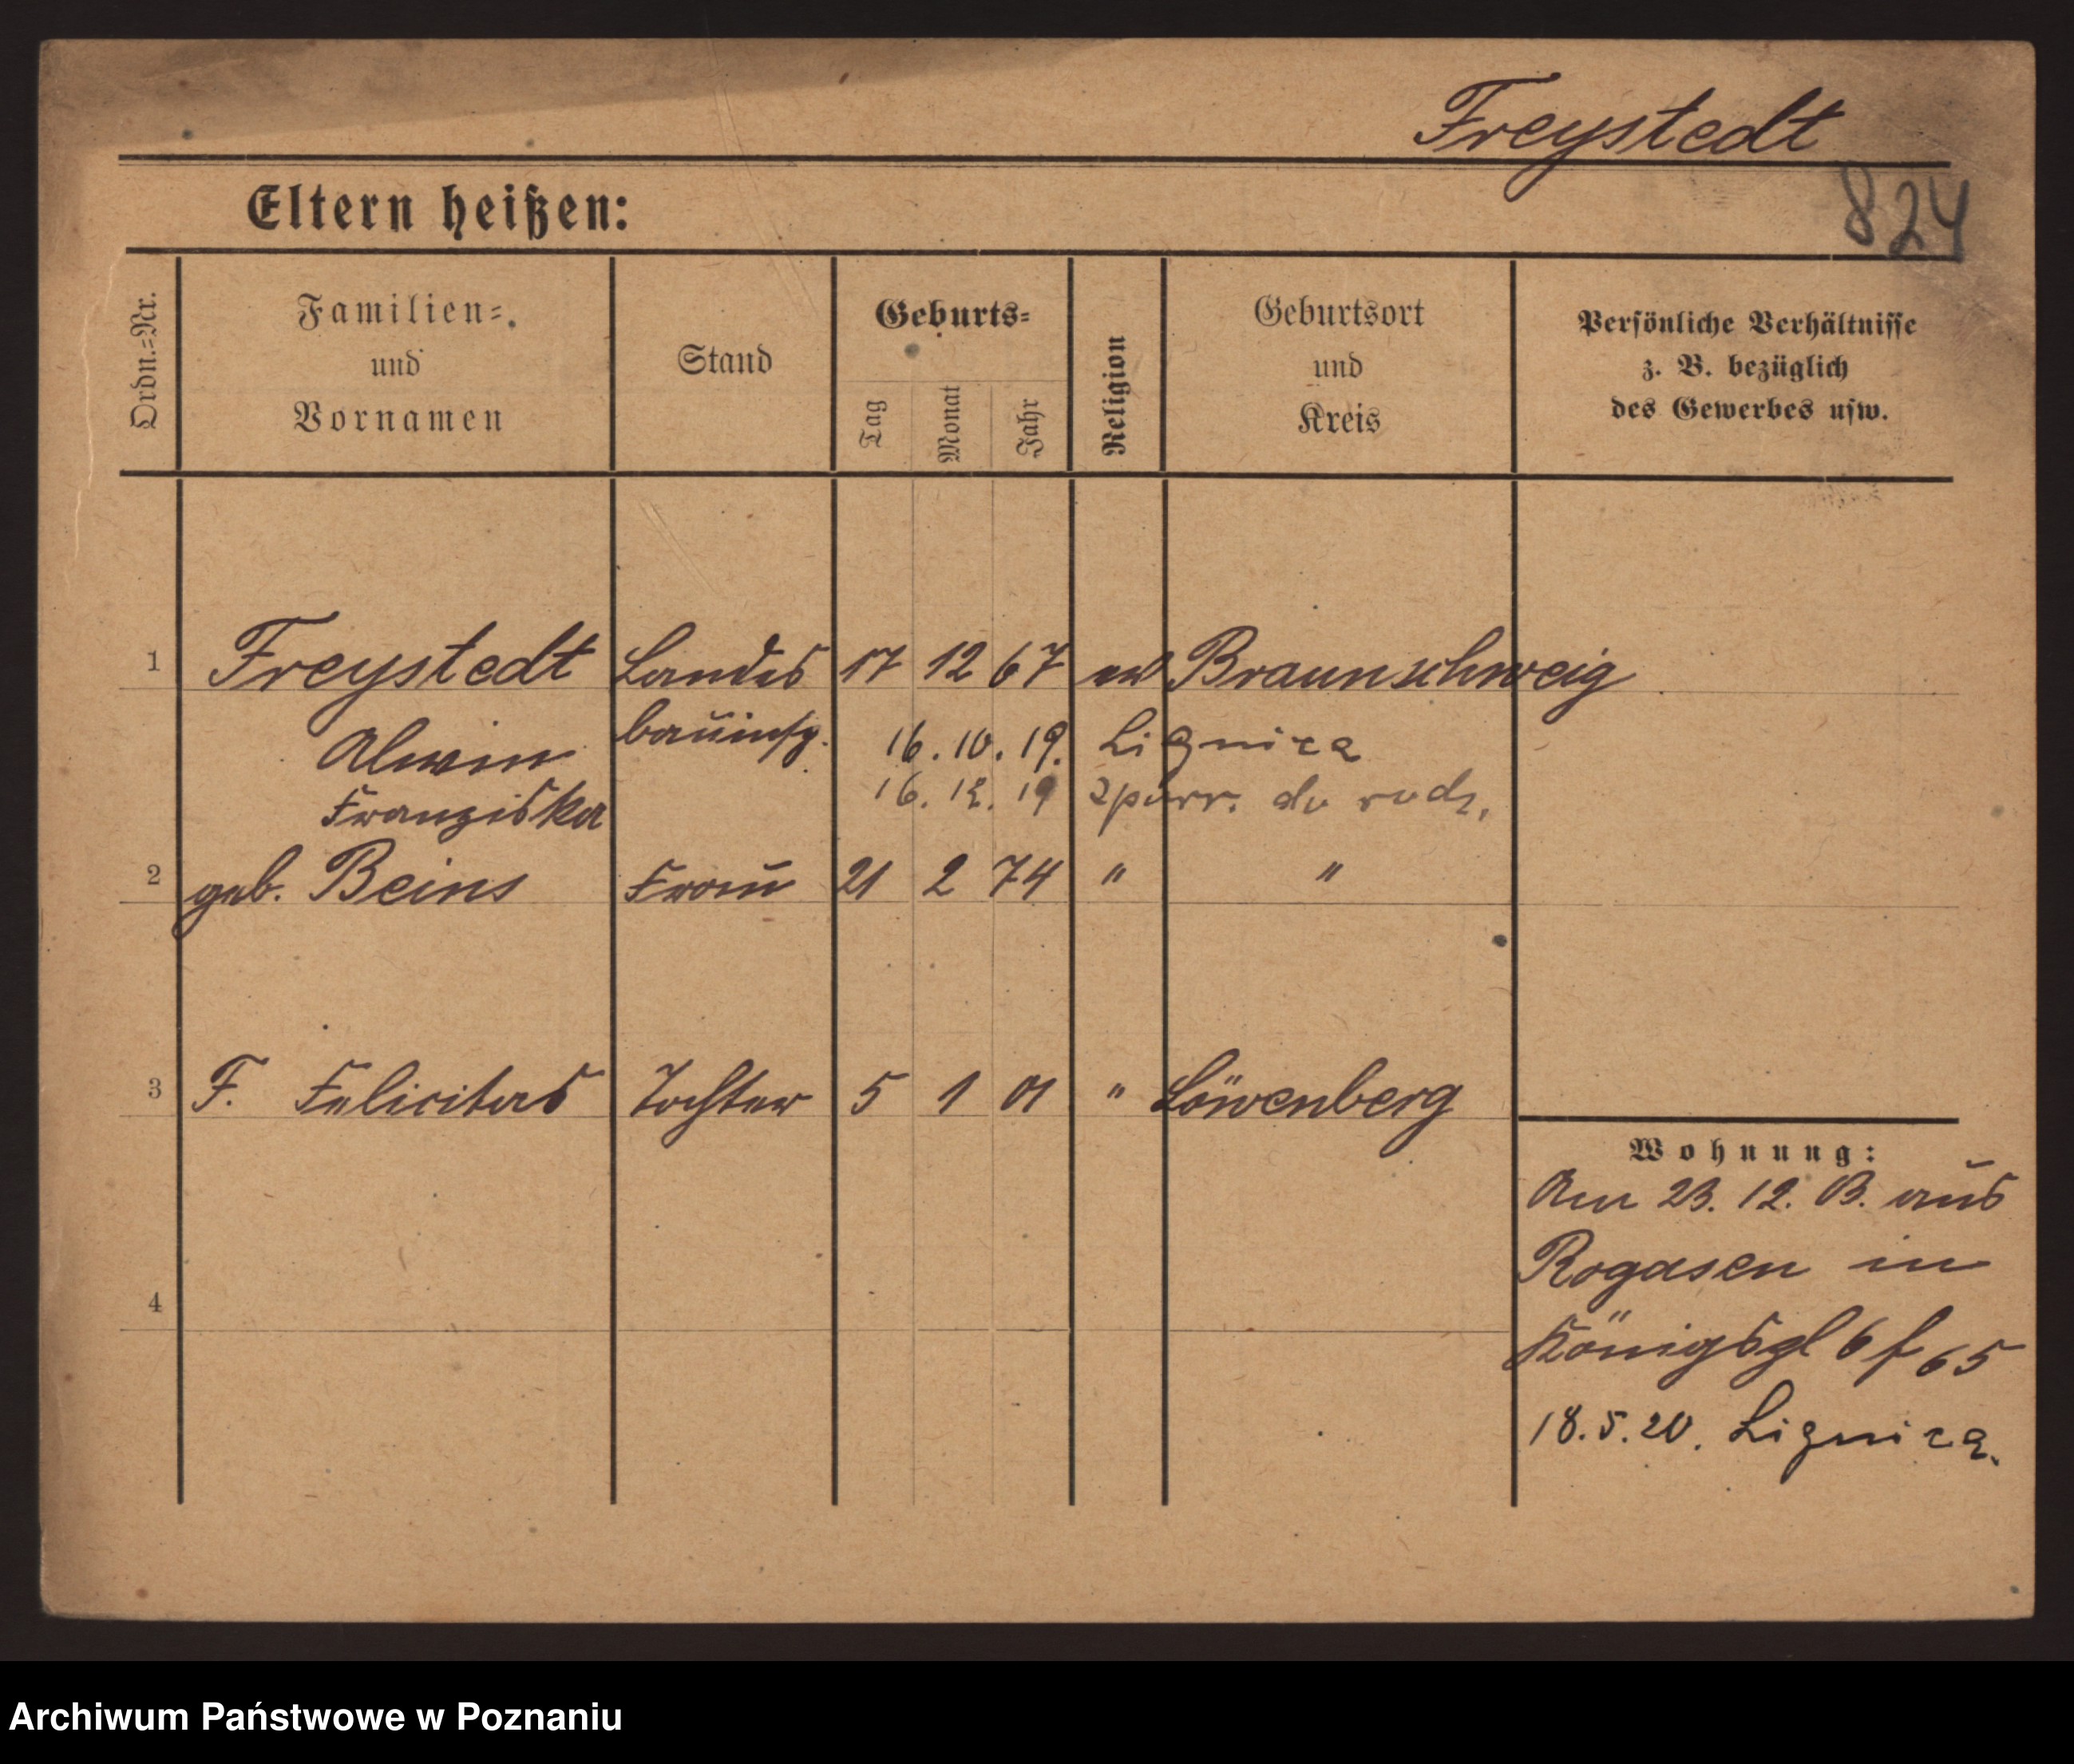 Freystedt
824
Eltern heißen:
Ordn.=Nr.
Familien=
und
Vornamen
Stand
Geburts=
Tag
Monat
Jahr
Religion
Geburtsort
und
Kreis
Persönliche Verhältnisse
z. B. bezüglich
des Gewerbes usw.
1 Freystedt Landes 17 12 67 ev Braunschweig
Alwin bauinsp. 16. 10. 19. Lignica
Franziska 16. 12. 19 z powr. do rodz.
2 geb. Beins Frau 21 2 74 " "
3 F. Felicitas Tochter 5 1 01 " Löwenberg
4
Wohnung:
Am 23. 12. 13. aus
Rogasen in
Königspl 6 f 65
18. 5. 20. Lignica.
Archiwum Państwowe w Poznaniu